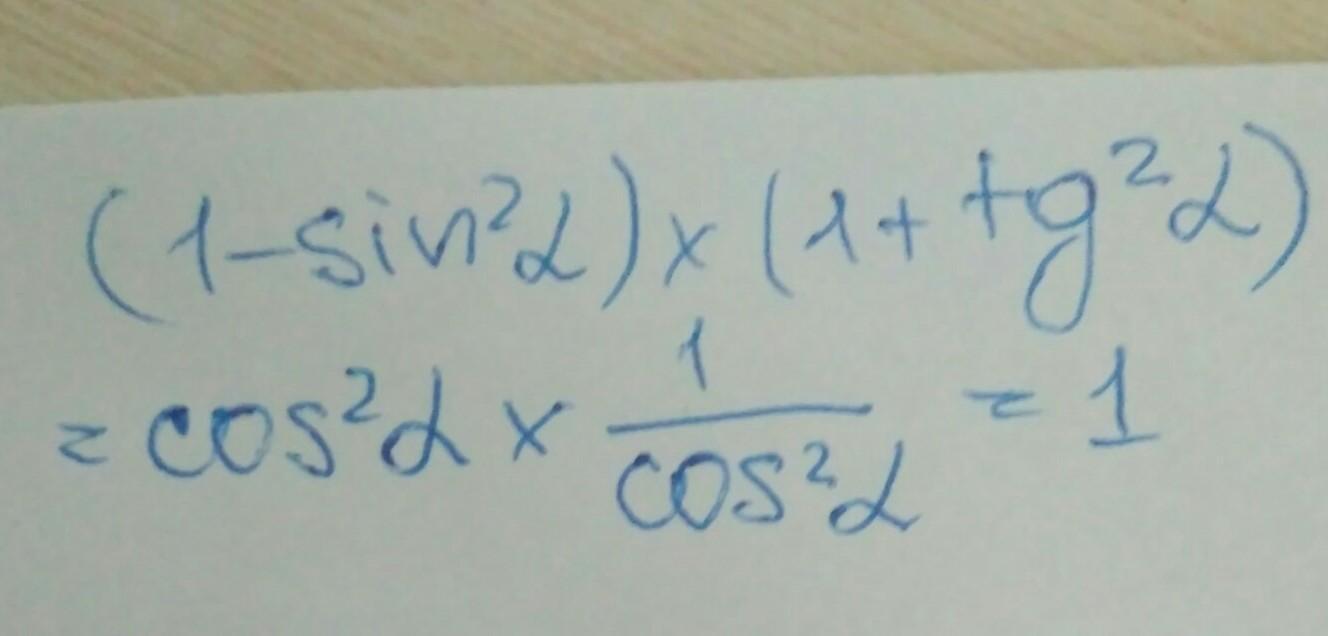 (1-sin²α)×(1+tg²α)
=cos²α×1/cos²α=1